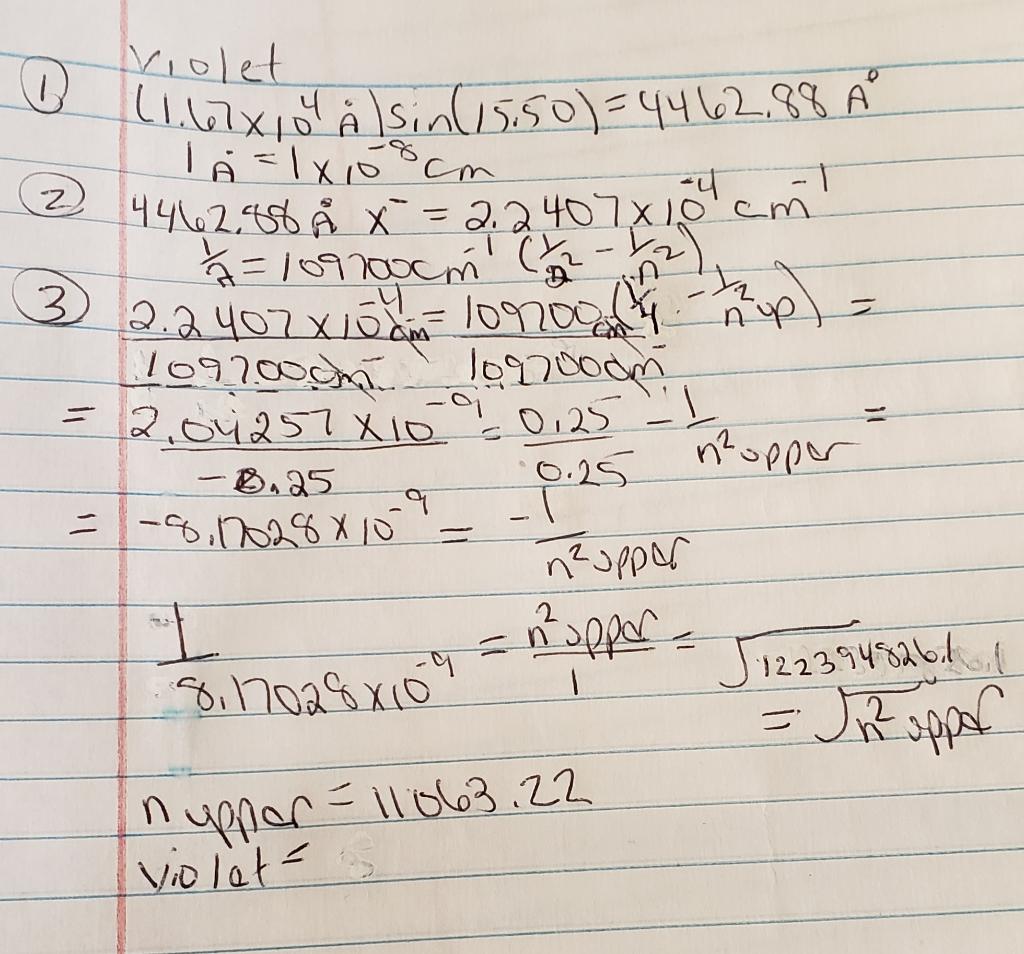 violet
① (1.67x10⁴ Å)sin(15.50)=4462.88 A°
1 Å = 1 x 10⁻⁸ cm
② 4462.88 Å x⁻ = 2.2407x10⁻⁴ cm⁻¹
1/λ = 109700cm⁻¹ (1/2² - 1/n²)
③ 2.2407x10⁻⁴cm⁻ = 109700cm⁻(1/4 - 1/n²up) =
109700cm⁻ 109700cm⁻
= 2.04257 x10⁻⁹ = 0.25 - 1/n²upper =
-0.25 0.25
= -8.17028 x 10⁻⁹ = -1/n²upper
1/8.17028x10⁻⁹ = n²upper/1 = √122394826.1
= √n²upper
n upper = 11063.22
violet =